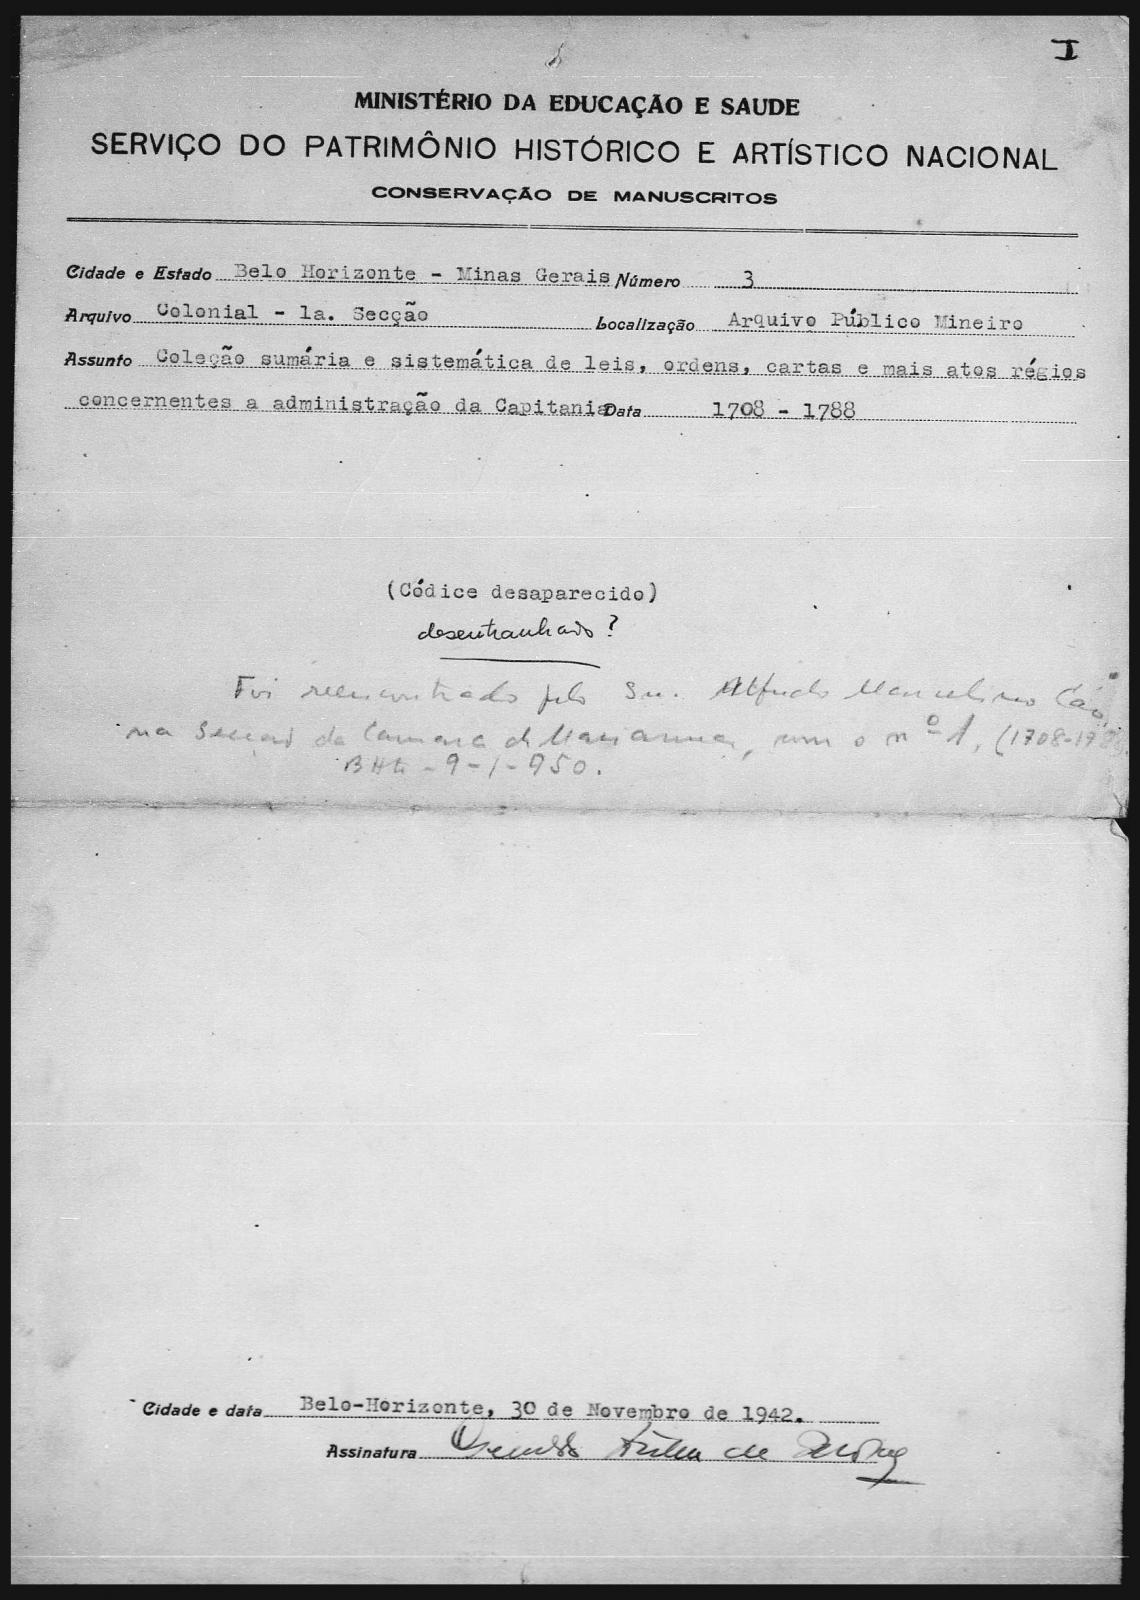 I
MINISTÉRIO DA EDUCAÇÃO E SAUDE
SERVIÇO DO PATRIMÔNIO HISTÓRICO E ARTÍSTICO NACIONAL
CONSERVAÇÃO DE MANUSCRITOS
Cidade e Estado Belo Horizonte - Minas Gerais Número 3
Arquivo Colonial - 1a. Secção Localização Arquivo Público Mineiro
Assunto Coleção sumária e sistemática de leis, ordens, cartas e mais atos régios
concernentes a administração da Capitania Data 1708 - 1788
(Códice desaparecido)
desentranhado?
Foi reencontrado pelo Snr. Alfredo Marcelino
na Secção da Camara de Marianna, com o nº 1, (1708-
BHte - 9-1-950.
Cidade e data Belo-Horizonte, 30 de Novembro de 1942.
Assinatura de